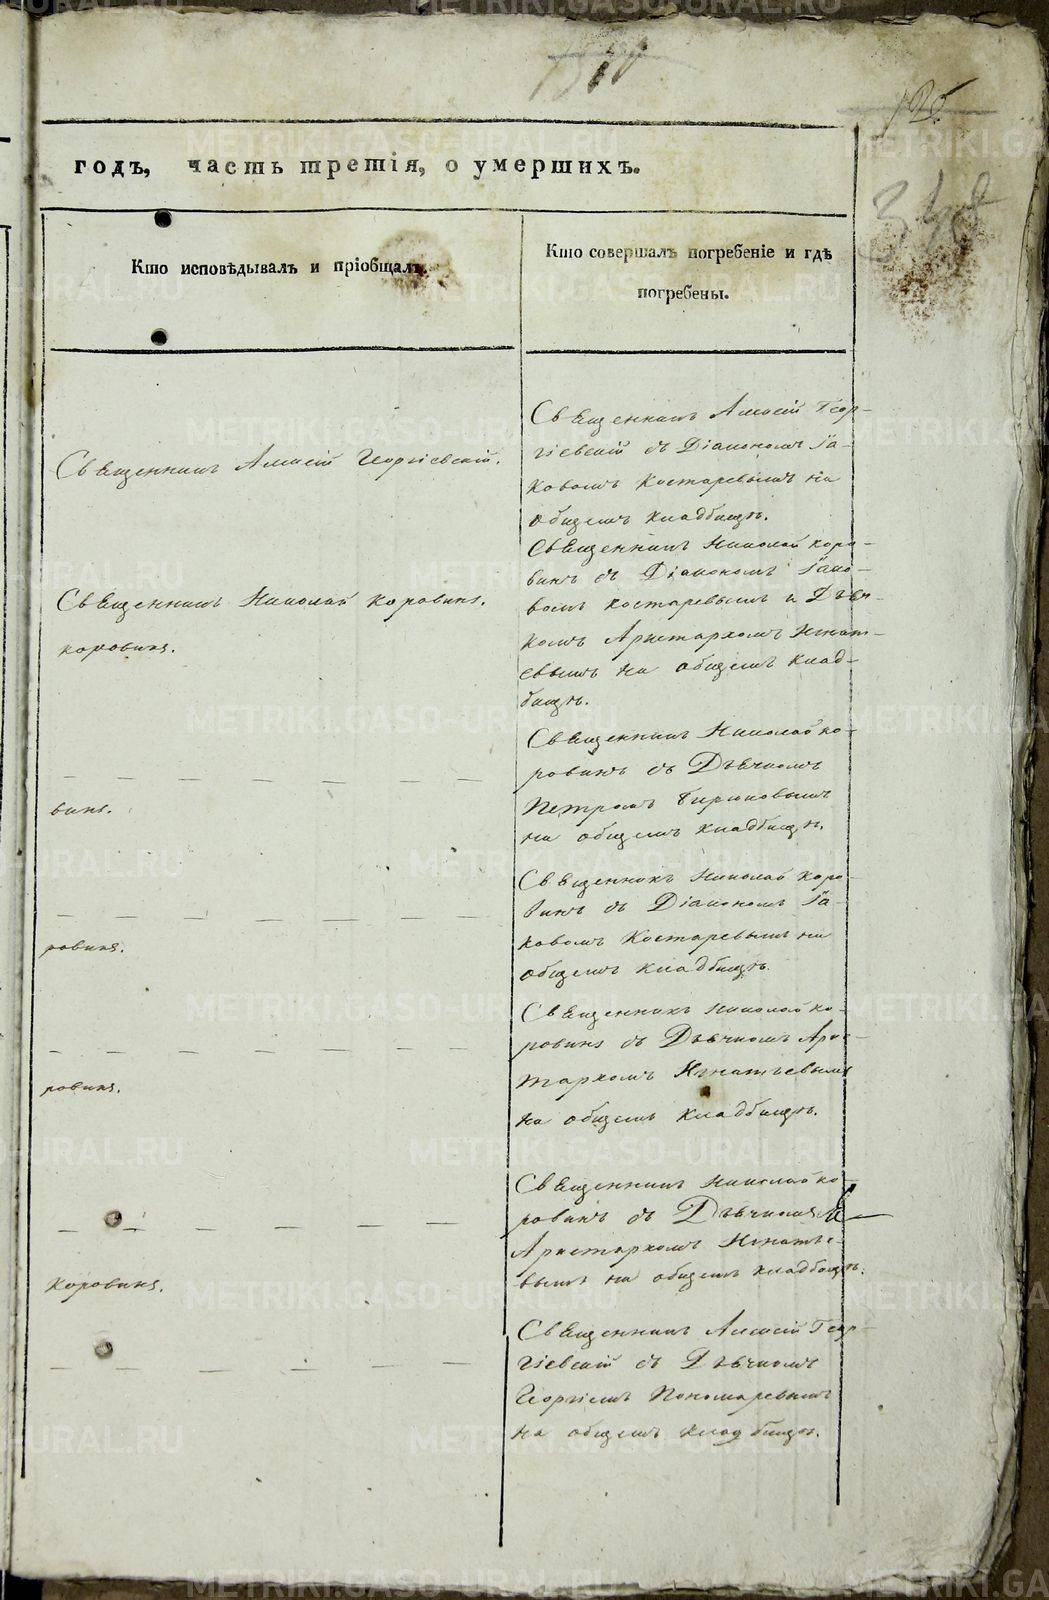 125
годъ, часть третія, о умершихъ.
Кто исповѣдывалъ и пріобщалъ.
Кто совершалъ погребеніе и гдѣ
погребены.
Священникъ Алексій Георгіевскій.
Священникъ Алексій Геор-
гіевскій съ Діакономъ Іа-
ковомъ Костаревымъ на
общемъ кладбищѣ.
Священникъ Николай Коровинъ.
коровинъ.
Священникъ Николай Коро-
винъ съ Діакономъ Іако-
вомъ Костаревымъ и Дьяч-
комъ Аристархомъ Игнать-
евымъ на общемъ клад-
бищѣ.
винъ.
Священникъ Николай Ко-
ровинъ съ Дьячкомъ
Петромъ Бирюковымъ
на общемъ кладбищѣ.
ровинъ.
Священникъ Николай Коро-
винъ съ Діакономъ Іа-
ковомъ Костаревымъ на
общемъ кладбищѣ.
ровинъ.
Священникъ Николай Ко-
ровинъ съ Дьячкомъ Арис-
тархомъ Игнатьевымъ
на общемъ кладбищѣ.
Коровинъ.
Священникъ Николай Ко-
ровинъ съ Дьячкомъ
Аристархомъ Игнатье-
вымъ на общемъ кладбищѣ.
Священникъ Алексій Геор-
гіевскій съ Дьячкомъ
Георгіемъ Пономаревымъ
на общемъ кладбищѣ.
METRIKI.GASO-URAL.RU